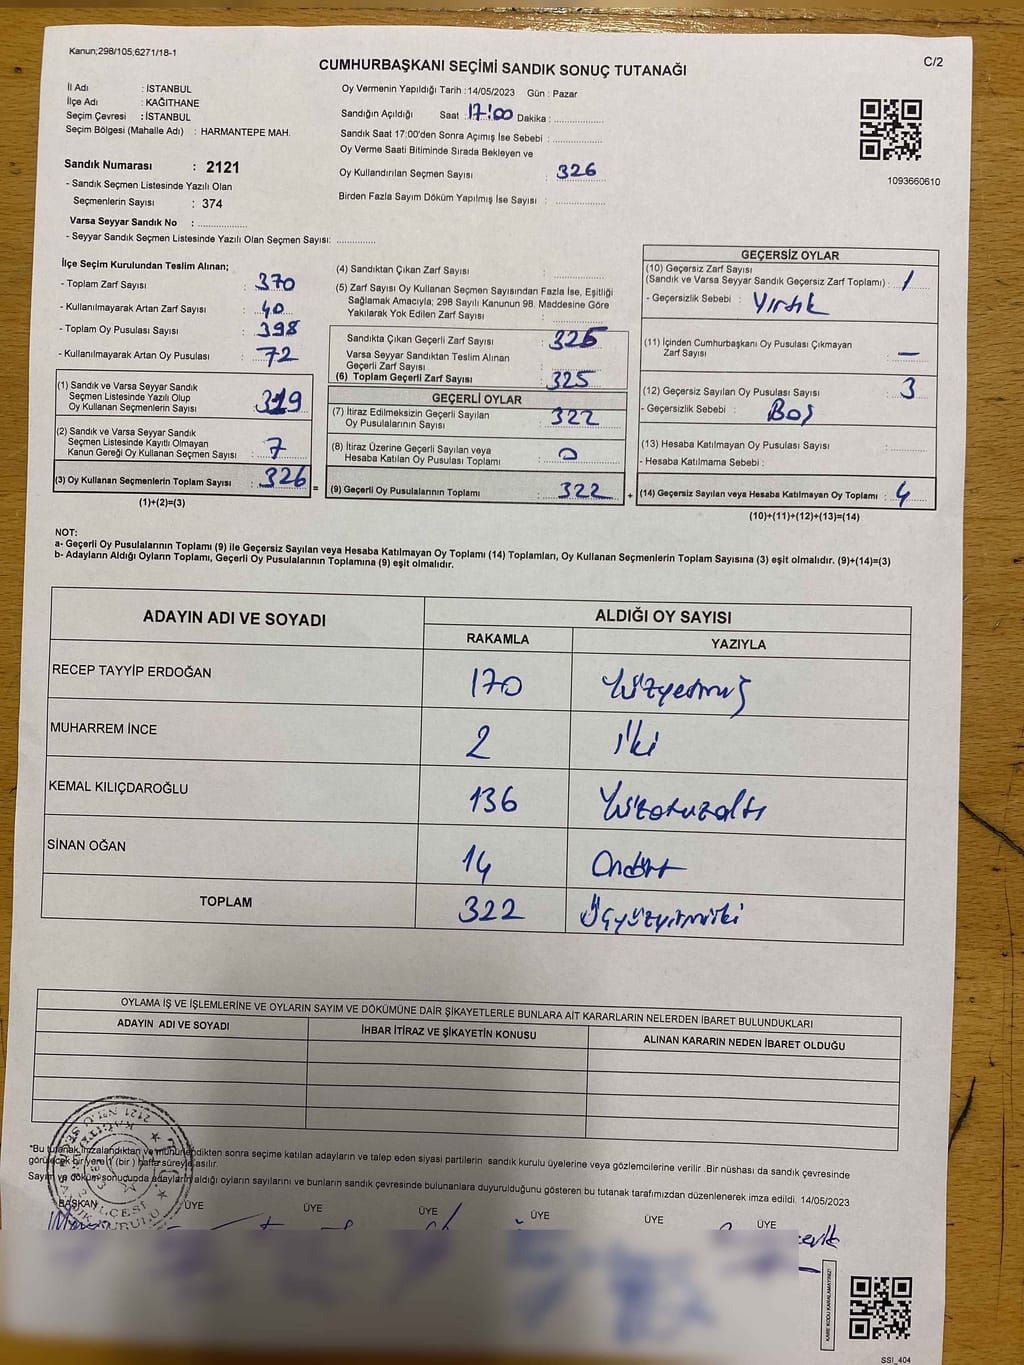 Kanun;298/105;6271/18-1
C/2
CUMHURBAŞKANI SEÇİMİ SANDIK SONUÇ TUTANAĞI
İl Adı : İSTANBUL
İlçe Adı : KAĞITHANE
Seçim Çevresi : İSTANBUL
Seçim Bölgesi (Mahalle Adı) : HARMANTEPE MAH.
Sandık Numarası : 2121
- Sandık Seçmen Listesinde Yazılı Olan
Seçmenlerin Sayısı : 374
Varsa Seyyar Sandık No : ..............
- Seyyar Sandık Seçmen Listesinde Yazılı Olan Seçmen Sayısı: ............
Oy Vermenin Yapıldığı Tarih :14/05/2023 Gün : Pazar
Sandığın Açıldığı Saat :17:00 Dakika : ..............
Sandık Saat 17:00'den Sonra Açımış İse Sebebi : ..............
Oy Verme Saati Bitiminde Sırada Bekleyen ve
Oy Kullandırılan Seçmen Sayısı : 326
Birden Fazla Sayım Döküm Yapılmış İse Sayısı : ..............
1093660610
İlçe Seçim Kurulundan Teslim Alınan;
- Toplam Zarf Sayısı : 370
- Kullanılmayarak Artan Zarf Sayısı : 40
- Toplam Oy Pusulası Sayısı : 398
- Kullanılmayarak Artan Oy Pusulası : 72
(1) Sandık ve Varsa Seyyar Sandık
Seçmen Listesinde Yazılı Olup
Oy Kullanan Seçmenlerin Sayısı : 319
(2) Sandık ve Varsa Seyyar Sandık
Seçmen Listesinde Kayıtlı Olmayan
Kanun Gereği Oy Kullanan Seçmen Sayısı : 7
(3) Oy Kullanan Seçmenlerin Toplam Sayısı : 326
(1)+(2)=(3)
(4) Sandıktan Çıkan Zarf Sayısı : ..............
(5) Zarf Sayısı Oy Kullanan Seçmen Sayısından Fazla İse, Eşitliği
Sağlamak Amacıyla; 298 Sayılı Kanunun 98. Maddesine Göre
Yakılarak Yok Edilen Zarf Sayısı : ..............
Sandıkta Çıkan Geçerli Zarf Sayısı : 325
Varsa Seyyar Sandıktan Teslim Alınan
Geçerli Zarf Sayısı : ..............
(6) Toplam Geçerli Zarf Sayısı : 325
GEÇERLİ OYLAR
(7) İtiraz Edilmeksizin Geçerli Sayılan
Oy Pusulalarının Sayısı : 322
(8) İtiraz Üzerine Geçerli Sayılan veya
Hesaba Katılan Oy Pusulası Toplamı : 0
= (9) Geçerli Oy Pusulalarının Toplamı : 322
GEÇERSİZ OYLAR
(10) Geçersiz Zarf Sayısı
(Sandık ve Varsa Seyyar Sandık Geçersiz Zarf Toplamı) : 1
- Geçersizlik Sebebi : Yırtık
(11) İçinden Cumhurbaşkanı Oy Pusulası Çıkmayan
Zarf Sayısı : —
(12) Geçersiz Sayılan Oy Pusulası Sayısı : 3
- Geçersizlik Sebebi : Boş
(13) Hesaba Katılmayan Oy Pusulası Sayısı : ..............
- Hesaba Katılmama Sebebi :
+ (14) Geçersiz Sayılan veya Hesaba Katılmayan Oy Toplamı : 4
(10)+(11)+(12)+(13)=(14)
NOT:
a- Geçerli Oy Pusulalarının Toplamı (9) ile Geçersiz Sayılan veya Hesaba Katılmayan Oy Toplamı (14) Toplamları, Oy Kullanan Seçmenlerin Toplam Sayısına (3) eşit olmalıdır. (9)+(14)=(3)
b- Adayların Aldığı Oyların Toplamı, Geçerli Oy Pusulalarının Toplamına (9) eşit olmalıdır.
ADAYIN ADI VE SOYADI ALDIĞI OY SAYISI
RAKAMLA YAZIYLA
RECEP TAYYİP ERDOĞAN 170 Yüzyetmiş
MUHARREM İNCE 2 iki
KEMAL KILIÇDAROĞLU 136 Yüzotuzaltı
SİNAN OĞAN 14 Ondört
TOPLAM 322 Üçyüzyirmiiki
OYLAMA İŞ VE İŞLEMLERİNE VE OYLARIN SAYIM VE DÖKÜMÜNE DAİR ŞİKAYETLERLE BUNLARA AİT KARARLARIN NELERDEN İBARET BULUNDUKLARI
ADAYIN ADI VE SOYADI İHBAR İTİRAZ VE ŞİKAYETİN KONUSU ALINAN KARARIN NEDEN İBARET OLDUĞU
*Bu tutanak imzalandıktan ve mühürlendikten sonra seçime katılan adayların ve talep eden siyasi partilerin sandık kurulu üyelerine veya gözlemcilerine verilir .Bir nüshası da sandık çevresinde
görülecek bir yere 1 (bir ) hafta süreyle asılır.
Sayım ve döküm sonucunda adayların aldığı oyların sayılarını ve bunların sandık çevresinde bulunanlara duyurulduğunu gösteren bu tutanak tarafımızdan düzenlenerek imza edildi. 14/05/2023
BAŞKAN ÜYE ÜYE ÜYE ÜYE ÜYE ÜYE
KARE KODU KARALAMAYINIZ!
SSI_404